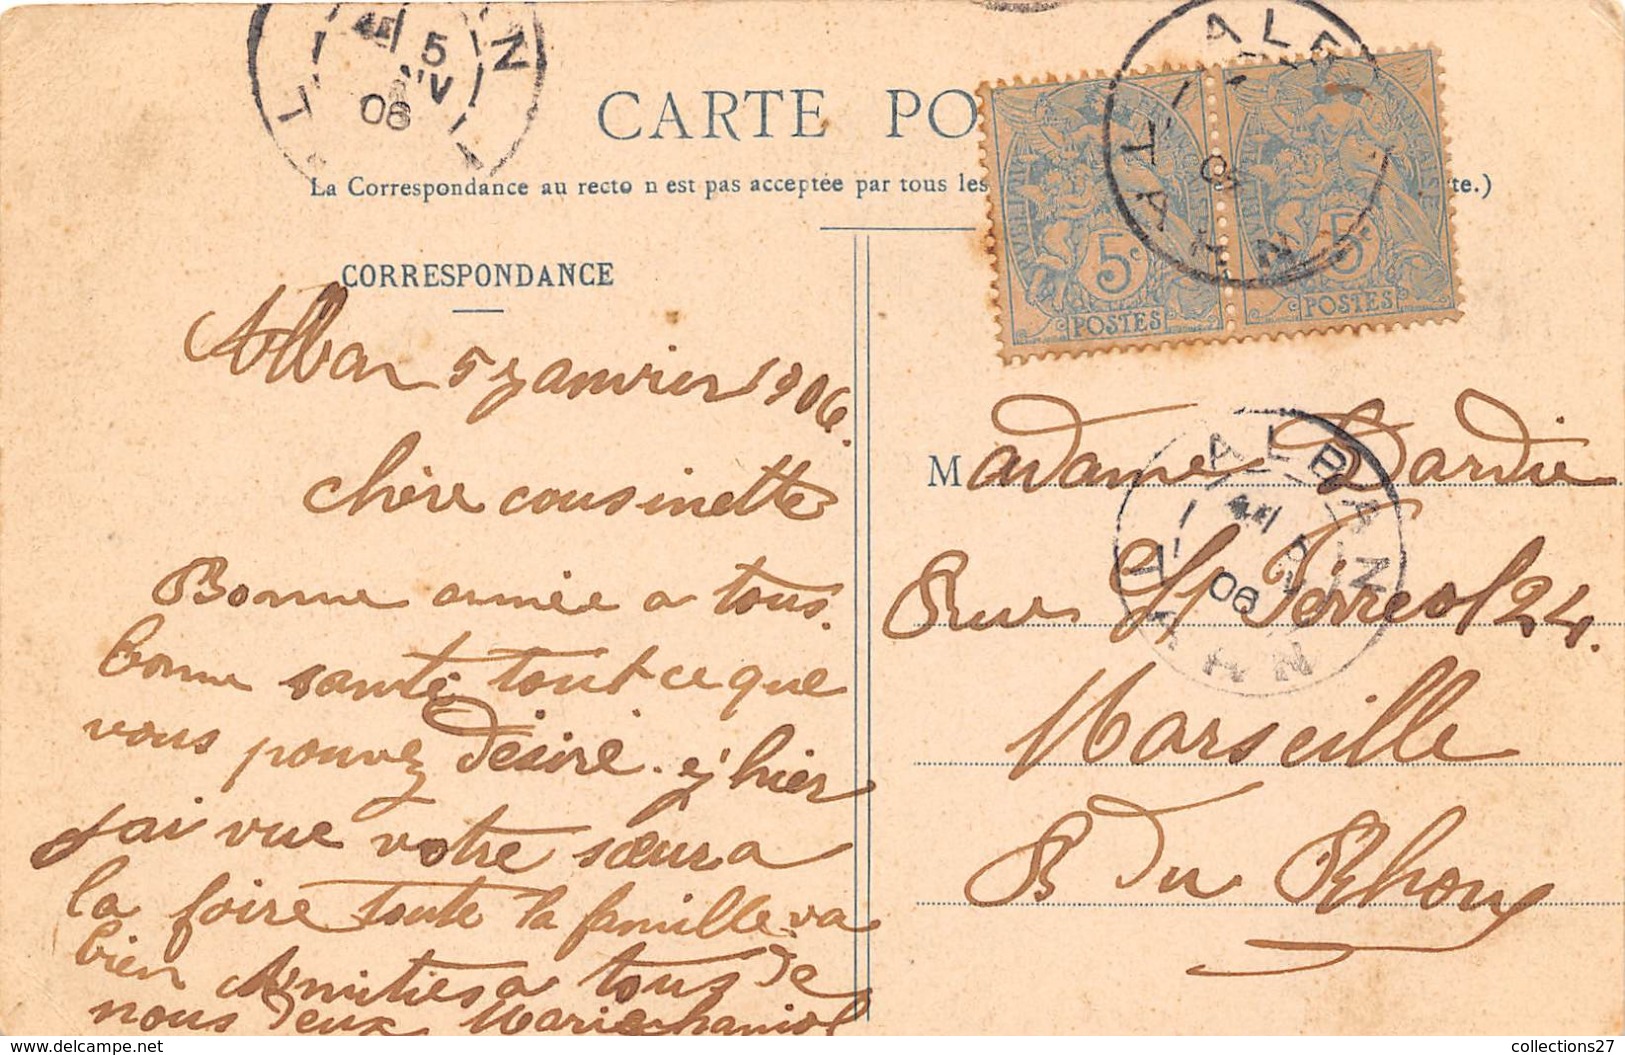 CARTE PO
La Correspondance au recto n est pas acceptée par tous les
te.)
CORRESPONDANCE
Alban 5 janvier 1906.
chère cousinette
Bonne année a tous.
bonne santé tout ce que
vous pouvez désiré. e j' hier
jai vue votre sœur a
la foire toute la famille va
bien Amitiés a tous de
nous deux Marie
5c
POSTES
5c
POSTES
ALBAN
TARN
06
ALBAN
TARN
06
5
06
Madame Bardie
Rue St Ferreol 24.
Marseille
B du Rhone
collections27